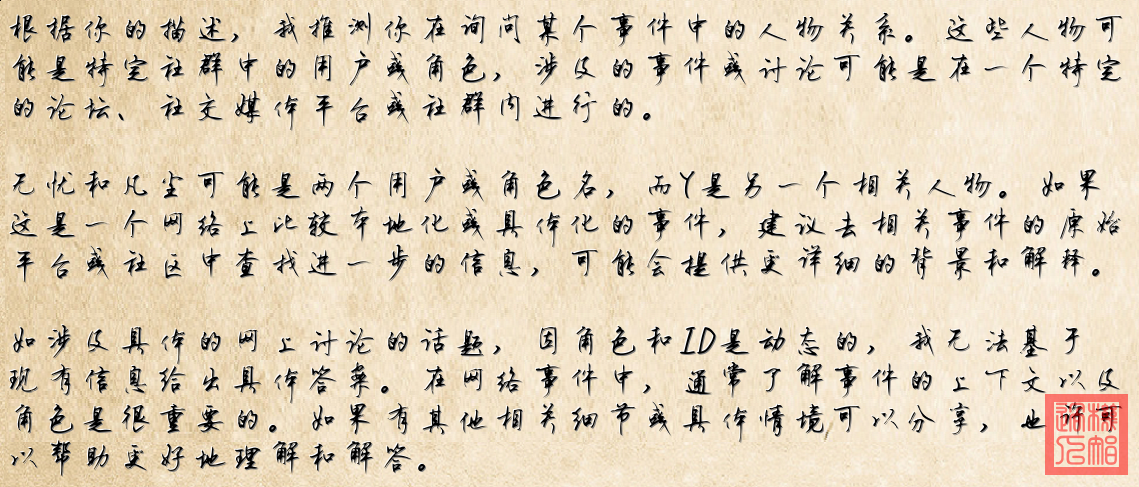 根据你的描述，我推测你在询问某个事件中的人物关系。这些人物可
能是特定社群中的用户或角色，涉及的事件或讨论可能是在一个特定
的论坛、社交媒体平台或社群内进行的。
无忧和凡尘可能是两个用户或角色名，而丫是另一个相关人物。如果
这是一个网络上比较本地化或具体化的事件，建议去相关事件的原始
平台或社区中查找进一步的信息，可能会提供更详细的背景和解释。
如涉及具体的网上讨论的话题，因角色和ID是动态的，我无法基于
现有信息给出具体答案。在网络事件中，通常了解事件的上下文以及
角色是很重要的。如果有其他相关细节或具体情境可以分享，也许可
以帮助更好地理解和解答。